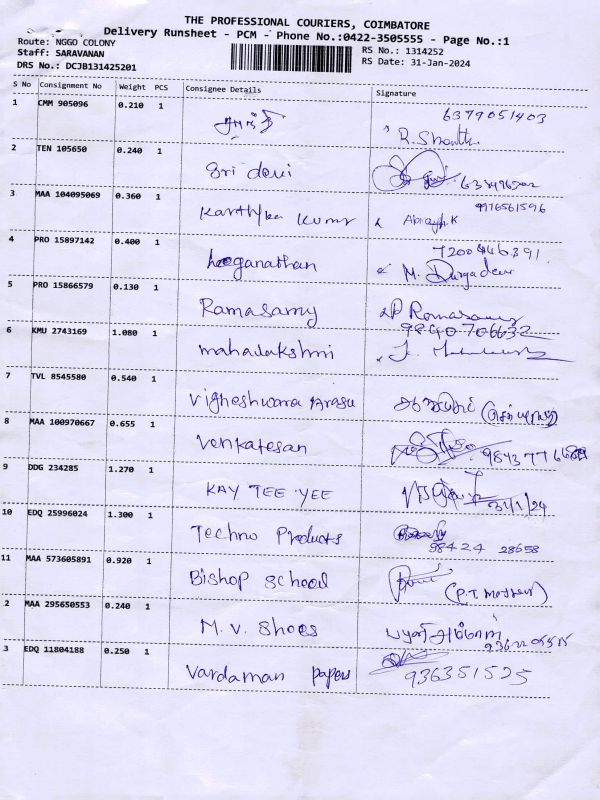 THE PROFESSIONAL COURIERS, COIMBATORE
Delivery Runsheet - PCM - Phone No.:0422-3505555 - Page No.:1
Route: NGGO COLONY
RS No.: 1314252
Staff: SARAVANAN
RS Date: 31-Jan-2024
DRS No.: DCJB131425201
S No Consignment No Weight PCS Consignee Details Signature
1 CMM 905096 0.210 1 6379051403
R. Shanthi
2 TEN 105650 0.240 1 Sri devi
3 MAA 104095069 0.360 1 Karthika Kumar 9976561596
4 PRO 15897142 0.400 1 loganathan 7200446391
M. Durgadevi
5 PRO 15866579 0.130 1 Ramasamy P Ramasamy
9840706632
6 KMU 2743169 1.080 1 mahalakshmi
7 TVL 8545580 0.540 1 Vigheshwara Arasu
8 MAA 100970667 0.655 1 Venkatesan
9 DDG 234285 1.270 1 KAY TEE YEE 31/1/24
10 EDQ 25996024 1.300 1 Techno Products
98424 28658
11 MAA 573605891 0.920 1 Bishop School
2 MAA 295650553 0.240 1 M. V. Shoes
3 EDQ 11804188 0.250 1 Vardaman papers 936351525